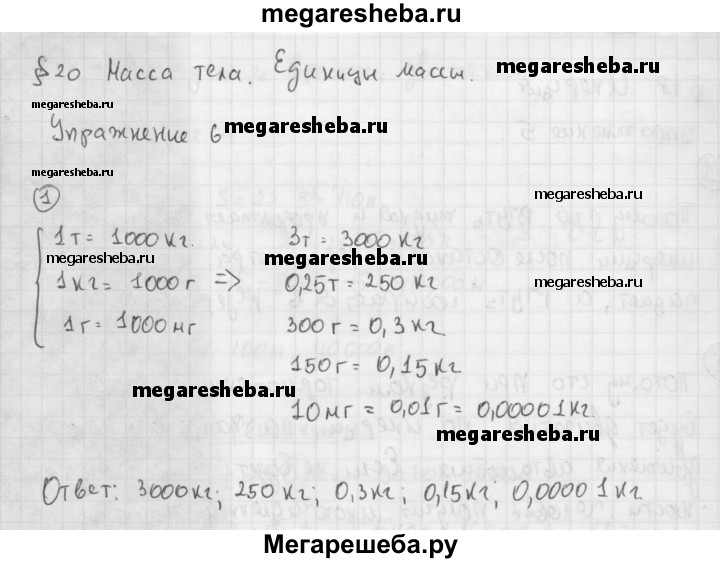 megaresheba.ru
§ 20 Масса тела. Единицы массы. megaresheba.ru
megaresheba.ru
Упражнение 6 megaresheba.ru
megaresheba.ru
1 megaresheba.ru
1т = 1000 кг. 3т = 3000 кг
megaresheba.ru megaresheba.ru megaresheba.ru
1кг = 1000 г => 0,25т = 250 кг
1г = 1000 мг 300 г = 0,3 кг
150 г = 0,15 кг
megaresheba.ru
10 мг = 0,01 г = 0,00001 кг
megaresheba.ru
Ответ: 3000 кг; 250 кг; 0,3 кг; 0,15 кг; 0,00001 кг.
Мегарешеба.ру